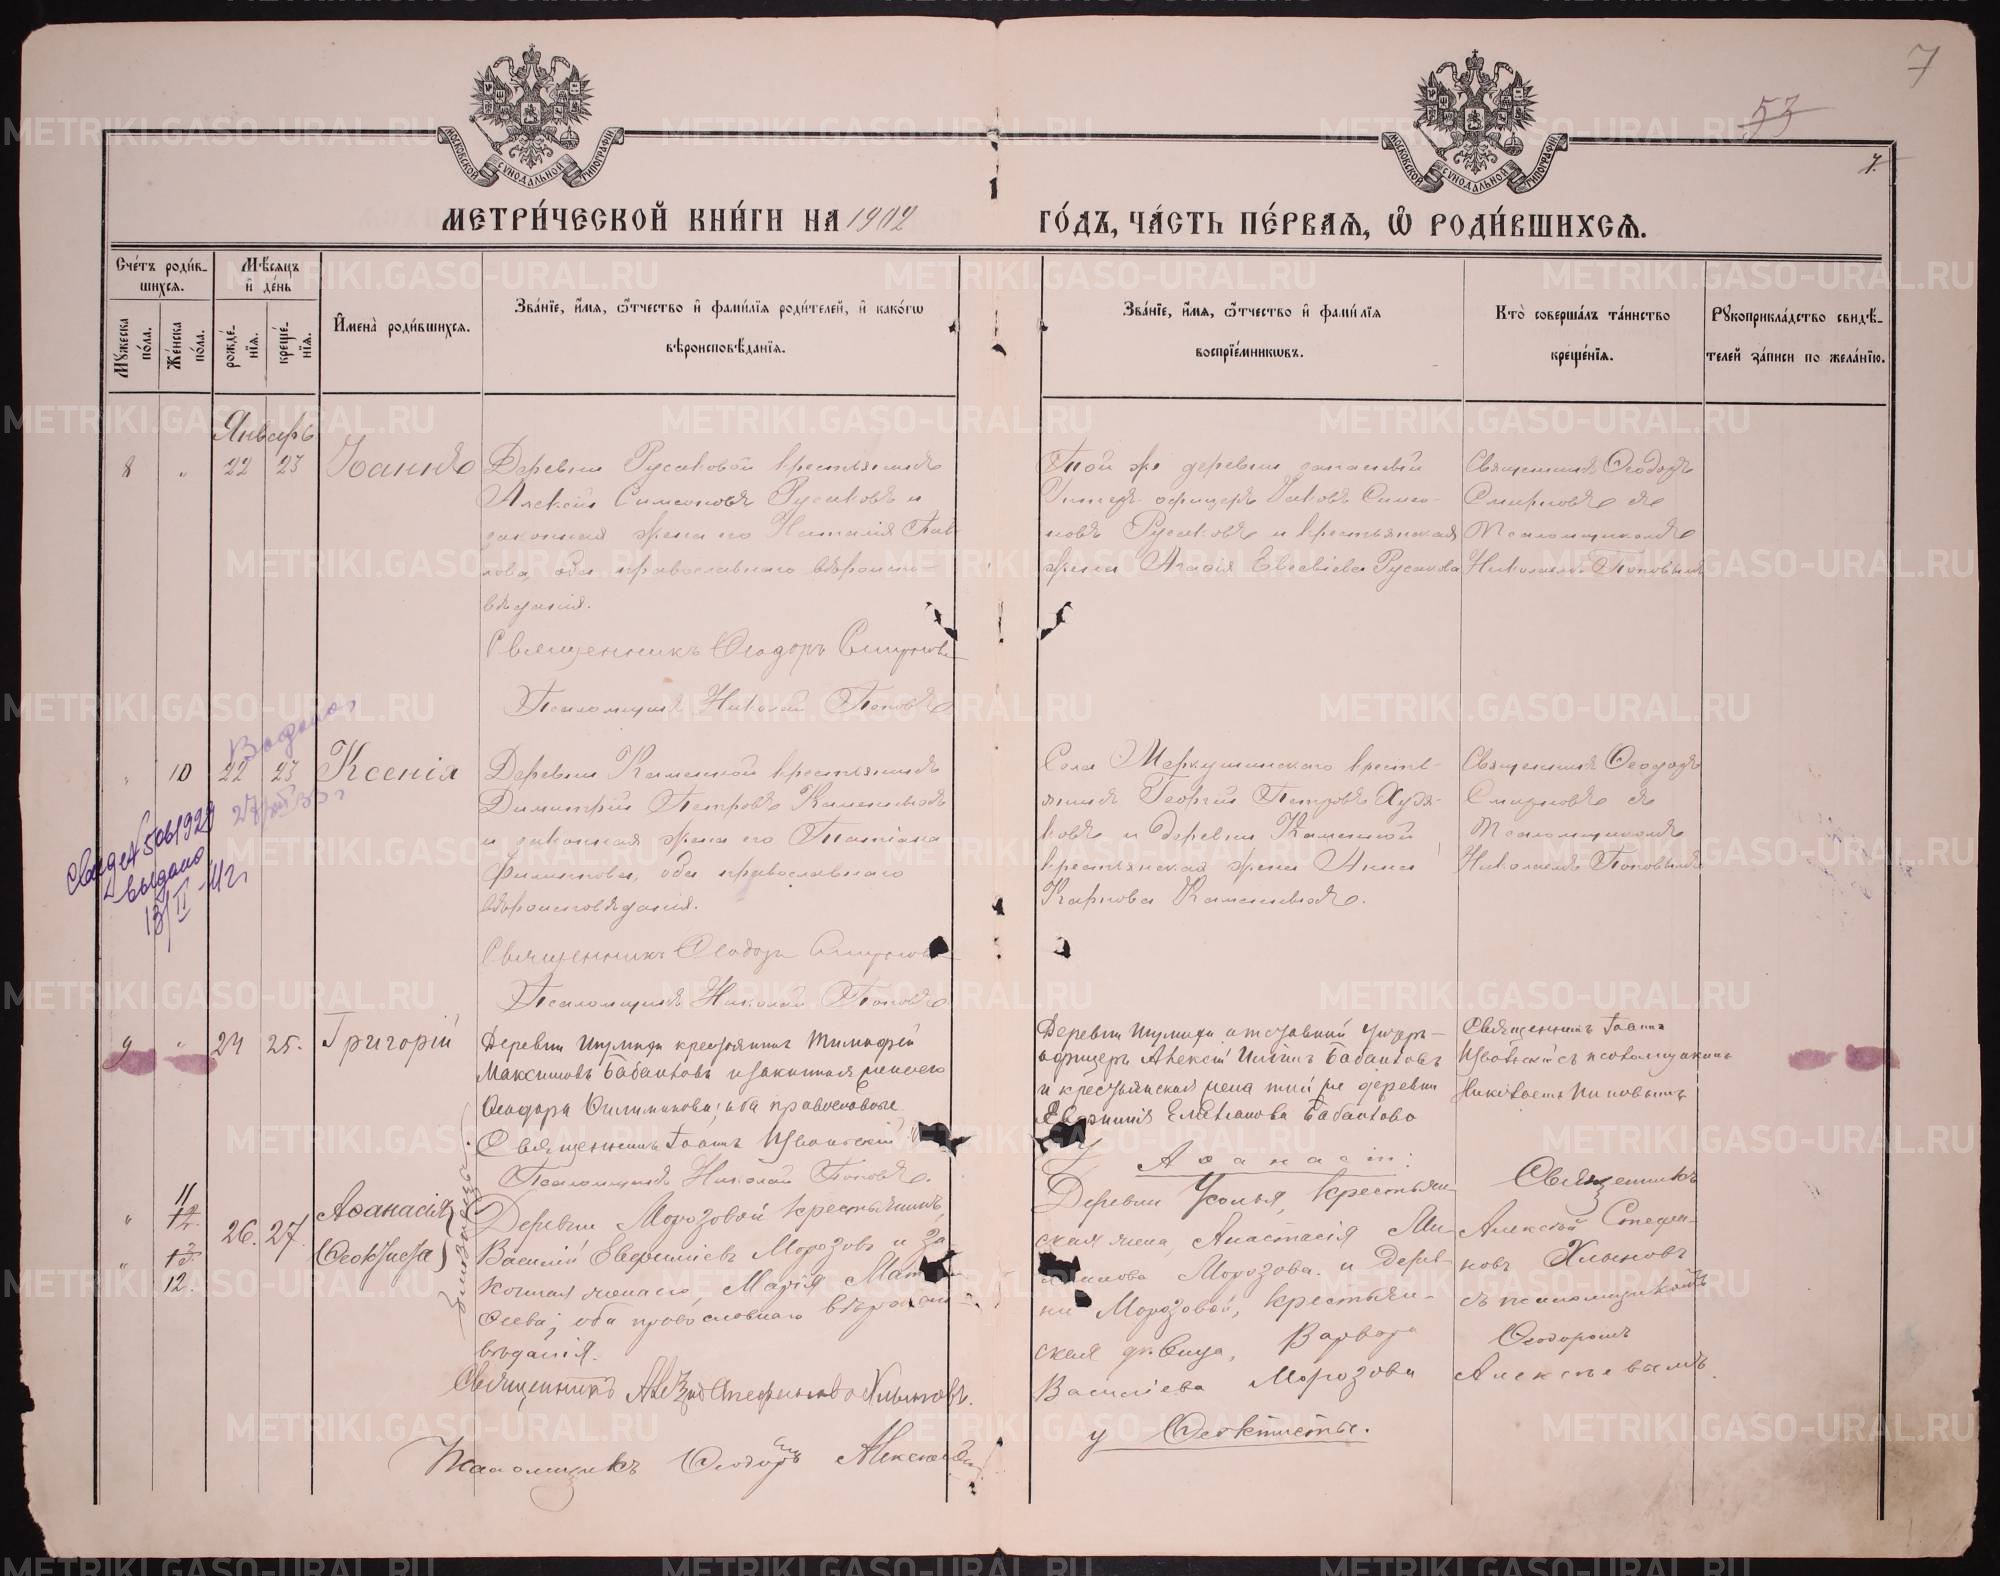 7
53
7.
МОСКОВСКОЙ СѴНОДАЛЬНОЙ ТИПОГРАФІИ
МОСКОВСКОЙ СѴНОДАЛЬНОЙ ТИПОГРАФІИ
МЕТРИ́ЧЕСКОЙ КНИ́ГИ НА 1902 ГО́ДЪ, ЧА́СТЬ ПЕ́РВАѦ, Ѽ РОДИ́ВШИХСѦ.
Сче́тъ роди́в-
шихсѧ.
Мѣ́сѧцъ
и҆ де́нь
Мꙋ́жеска
по́ла.
Же́нска
по́ла.
рожде́-
нїѧ.
креще́-
нїѧ.
И҆мена̀ роди́вшихсѧ.
Зва́нїе, и҆́мѧ, ѻ҆́тчество и҆ фами́лїѧ роди́телей, и҆ како́гѡ
вѣроисповѣ́данїѧ.
Зва́нїе, и҆́мѧ, ѻ҆́тчество и҆ фами́лїѧ
воспрїе́мникѡвъ.
Кто̀ соверша́лъ та́инство
креще́нїѧ.
Рꙋкоприкла́дство свидѣ́-
телей за́писи по жела́нїю.
Январь
8 " 22 23 Іоаннъ
Деревни Русаковой крестьянинъ
Алексій Симеоновъ Русаковъ и
законная жена его Наталія Пав-
лова, оба православнаго вѣроиспо-
вѣданія.
Священникъ Ѳеодоръ Смирновъ
Псаломщикъ Николай Поповъ
Той же деревни запасный
Унтеръ офицеръ Іаковъ Симео-
новъ Русаковъ и крестьянская
жена Агафія Евсевіева Русакова
Священникъ Ѳеодоръ
Смирновъ съ
Псаломщикомъ
Николаемъ Поповымъ
" 10 22 23 Ксенія
Деревни Каменной крестьянинъ
Димитрій Петровъ Каменныхъ
и законная жена его Татіана
Филиппова, оба православнаго
вѣроисповѣданія.
Священникъ Ѳеодоръ Смирновъ
Псаломщикъ Николай Поповъ
Села Меркушинскаго кресть-
янинъ Георгій Петровъ Худя-
ковъ и деревни Каменной
крестьянская жена Анна
Карпова Каменныхъ.
Священникъ Ѳеодоръ
Смирновъ съ
Псаломщикомъ
Николаемъ Поповымъ
9 " 24 25. Григорій
Деревни крестьянинъ Тимофей
Максимовъ Бабаиловъ и законная жена его
Ѳеодора Филимонова; оба православные
Священникъ Іоаннъ
Псаломщикъ Николай Поповъ.
Деревни отставной Унтеръ-
офицеръ Алексій Бабаиловъ
и крестьянская жена той же деревни
Бабаилова
Священникъ Іоаннъ
съ псаломщикомъ
Николаемъ Поповымъ
" 11 26. 27. Аѳанасія
" 12. Ѳеоктиста
Близнецы.
Деревни Морозовой крестьянинъ,
Василій Евфиміевъ Морозовъ и за-
конная жена его, Марія Мат-
ѳеева; оба православнаго вѣроиспо-
вѣданія.
Священникъ Алексій Стефановъ Хлыновъ.
Псаломщикъ Ѳеодоръ Алексѣевъ
У Аѳанасіи:
Деревни Усолья, крестьян-
ская жена, Анастасія
Морозова. и Дерев-
ни Морозовой, крестьян-
ская дѣвица, Варвара
Василіева Морозова
у Ѳеоктисты.
Священникъ
Алексѣй Стефа-
новъ Хлыновъ
съ псаломщикомъ
Ѳеодоромъ
Алексѣевымъ.